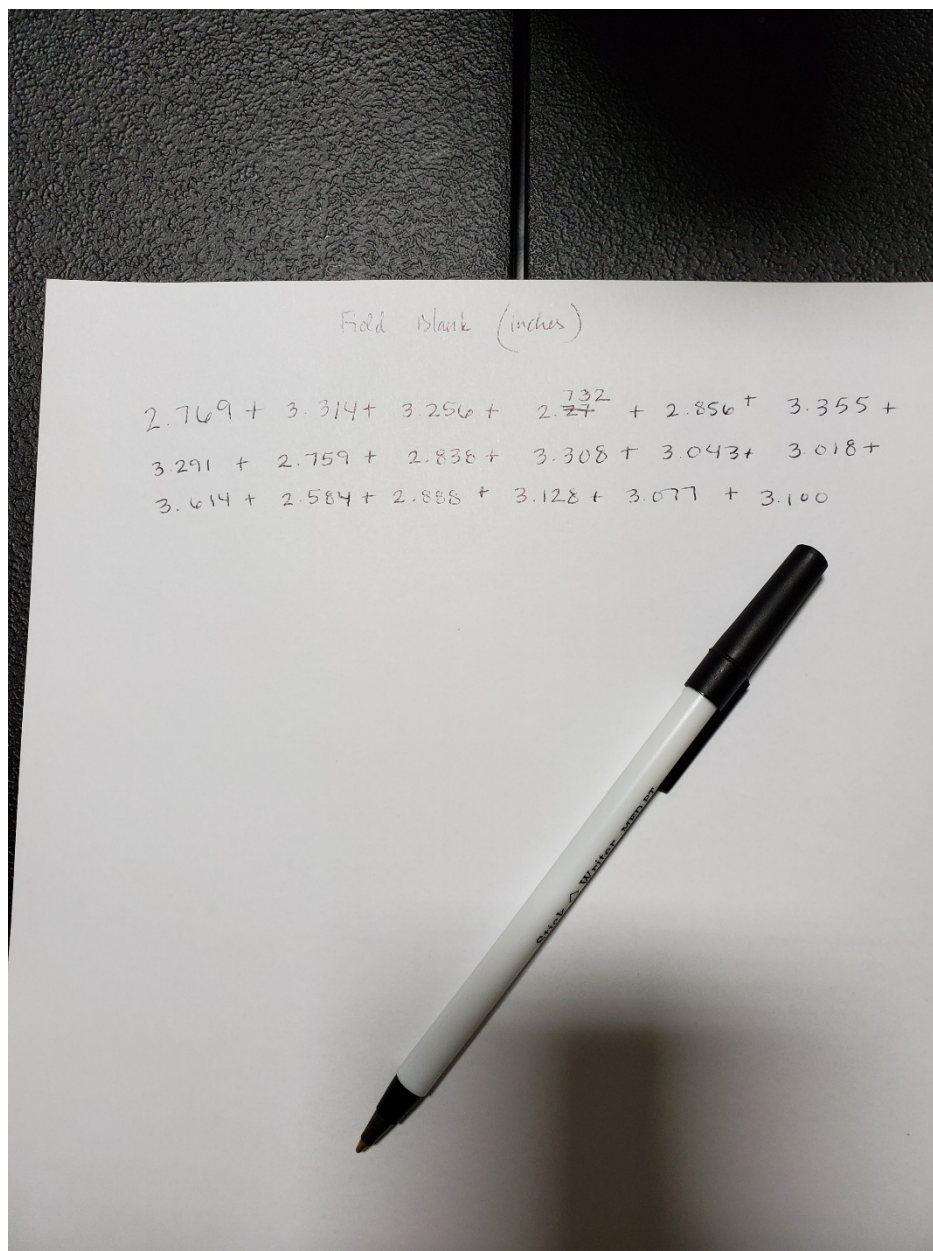 Field Blank (inches)
2.769 + 3.314 + 3.256 + 2.732 + 2.856 + 3.355 +
3.291 + 2.759 + 2.838 + 3.308 + 3.043 + 3.018 +
3.614 + 2.584 + 2.888 + 3.128 + 3.077 + 3.100
Stick Writer MED.PT